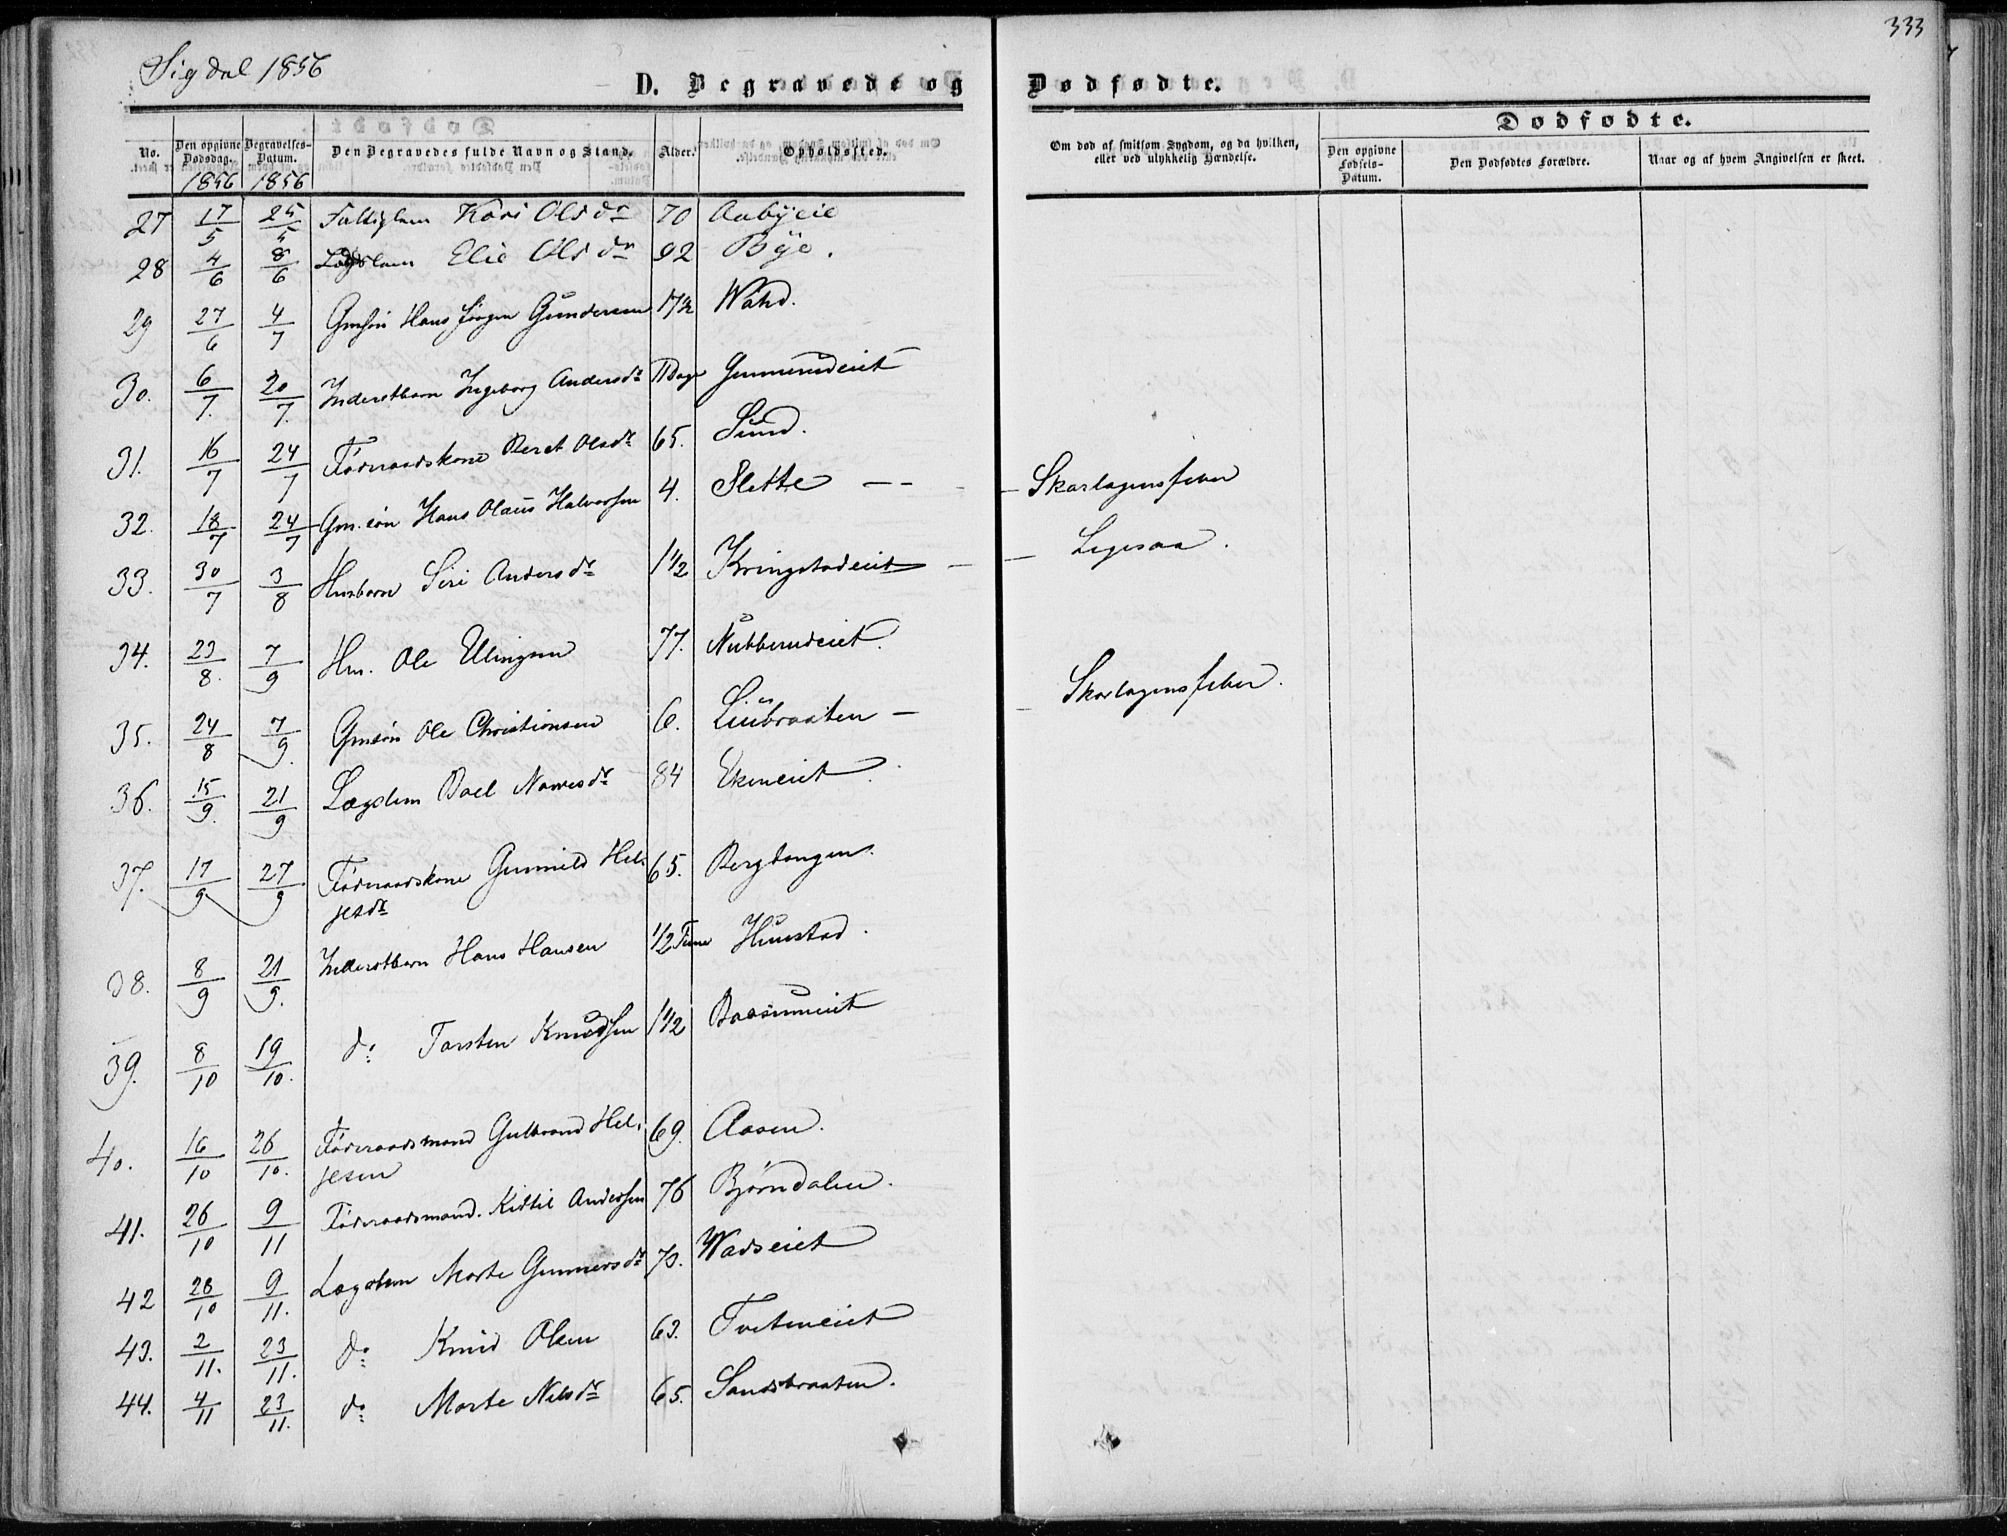 333
Sigdal 1856
D. Begravede og Dødfødte.
Dødfødte.
No. Den opgivne Dødsdag. Begravelses-Datum. Den Begravedes fulde Navn og Stand. Alder. Opholdssted. Om død af smitsom Sygdom, og da hvilken, eller ved ulykkelig Hændelse. Den opgivne Fødsels-Datum. Den Dødfødtes Forældre. Naar og af hvem Angivelsen er skeet.
1856 1856
27 17/5 25/5 Fattiglem Kari Olsdr 70 Aabyeie
28 4/6 8/6 Lægdslem Elie Olsdr 92 Bye.
29 27/6 4/7 Gmsøn Hans Jørgen Gundersen Wahd.
30. 6/7. 20/7. Inderstbarn Ingeborg Andersdr Dage Gunnerudeiet
31. 16/7 24/7 Føderaadskone Beret Olsdr 65. Sund.
32. 18/7 24/7 Gm.søn Hans Olaus Halvorsen 4. Slette — — Skarlagensfeber
33. 30/7 3/8 Husbarn Siri Andersdr 1 1/2 Kringstadeiet — Ligesaa.
34. 23/8. 7/9 Hm. Ole Ellingsen 77. Nubberudeiet.
35. 24/8 7/9. Gmsøn Ole Christiansen 6. Liubraaten — Skarlagensfeber.
36. 15/9. 21/9 Lægdslem Boel Narvesdr 84 Ekeneiet.
37. 17/9 27/9 Føderaadskone Gunnild Hel-
jesdr 65. Bergtangen.
38. 8/9 21/9. Inderstbarn Hans Hansen 1/2 Time Hunstad.
39. 8/10 19/10. do Torsten Knudsen 1 1/2 Baasumeiet
40. 16/10 26/10. Føderaadsmand Gulbrand Hel-
jesen 69. Aasen.
41. 26/10 9/11 Føderaadsmand. Kittil Andersen 76 Bjørndalen.
42 28/10 9/11. Lægdslem Marte Gunnersdr 73. Wadseiet
43. 2/11. 23/11. do Knud Olsen 63. Tveteneiet
44. 4/11 23/11. do Marte Nilsdr 65. Sandsbraaten.